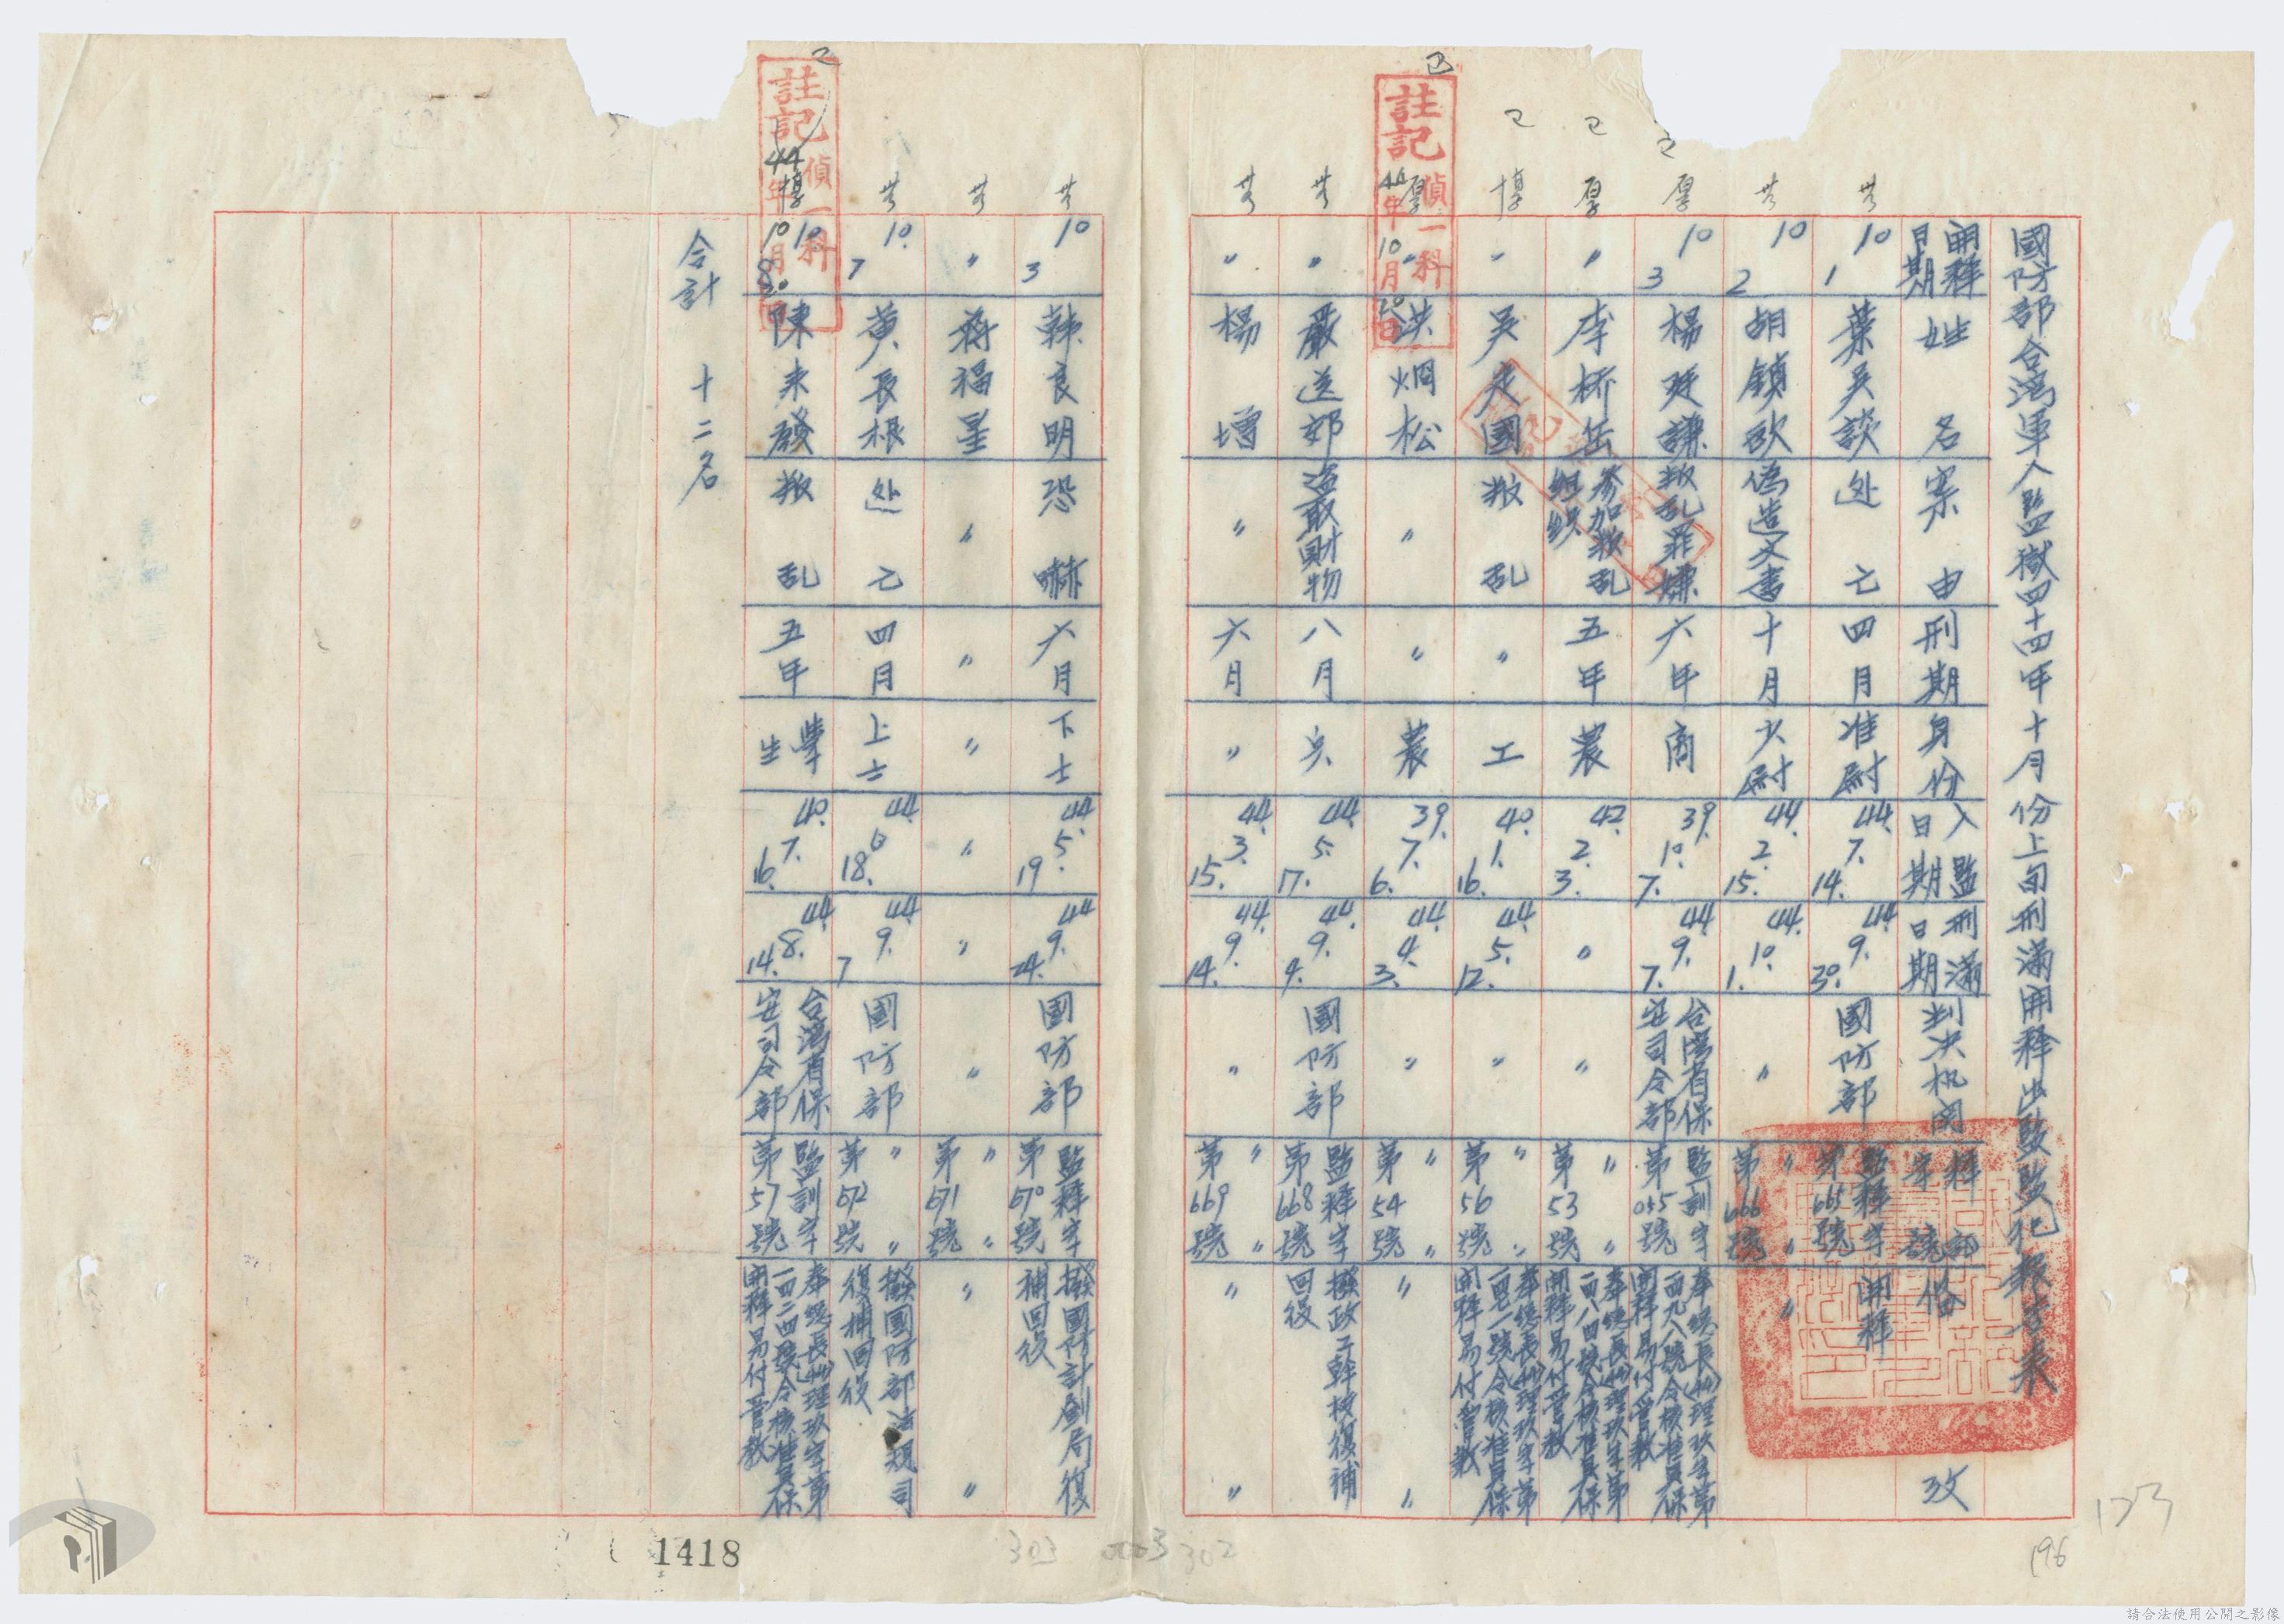 國防部台灣軍人監獄四十四年十月份上旬刑滿開釋出獄監犯報告表
開釋日期 姓名 案由 刑期 身份 入監日期 刑滿日期 判決机関 釋字號 備攷
10 1 葉吳談 逃亡 四月 准尉 44.7.14. 44.9.30. 國防部 監釋字第665號 開釋
10 2 胡鎮欧 偽造文書 十月 少尉 44.2.15. 44.10.1. 〃 〃第666號〃 〃
10 3 楊廷謙 叛乱罪嫌 六年 商 39.10.7. 44.9.7. 台灣省保安司令部 監訓字第055號 奉總長理玖字第一四九八八號令核准具保開釋易付管教
〃 李桥岳 参加叛乱組織 五年 農 42.2.3. 〃 〃 〃第53號〃 奉總長理玖字第號令核准具保開釋易付管教
〃 吳定國 叛乱 〃 工 40.1.16. 44.5.12. 〃 〃第56號〃 奉總長理玖字第號令核准具保開釋易付管教
〃 洪烱松 〃 〃 農 39.7.6. 44.4.3. 〃 〃第54號〃 〃 〃
〃 嚴送郊 盗取財物 八月 兵 44.5.17. 44.9.4. 國防部 監釋字第668號 撥政工幹校復補回役
〃 楊增 〃 六月 〃 44.3.15. 44.9.14. 〃 〃第669號〃 〃 〃
10 3 韩良明 恐嚇 六月 下士 44.5.19 44.9.24. 國防部 監釋字第670號 撥國防計劃局復補回役
〃 蒋福星 〃 〃 〃 〃 〃 〃 〃第671號〃 〃 〃
10. 7 黄長根 逃亡 四月 上士 44.6.18. 44.9.7 國防部 〃第672號〃 撥國防部法規司復補回役
10. 8 陳来發 叛乱 五年 學生 40.7.16. 44.8.14. 台灣省保安司令部 監訓字第57號 奉總長理玖字第一四二四號令核准具保開釋易付管教
合計 十二名
註記 偵一科
44年10月20日
註記 偵一科
44年10月20日
1418
303
0003
302
196
173
請合法使用公開之影像